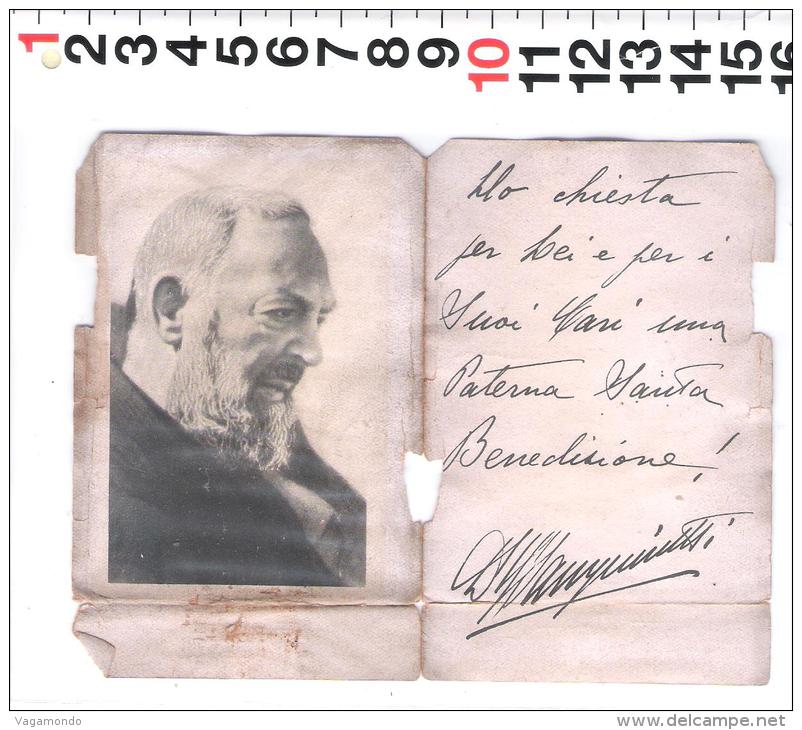 1 2 3 4 5 6 7 8 9 10 11 12 13 14 15 16
Ho chiesta
per Lei e per i
Suoi Cari una
Paterna Santa
Benedizione!
Vagamondo
www.delcampe.net